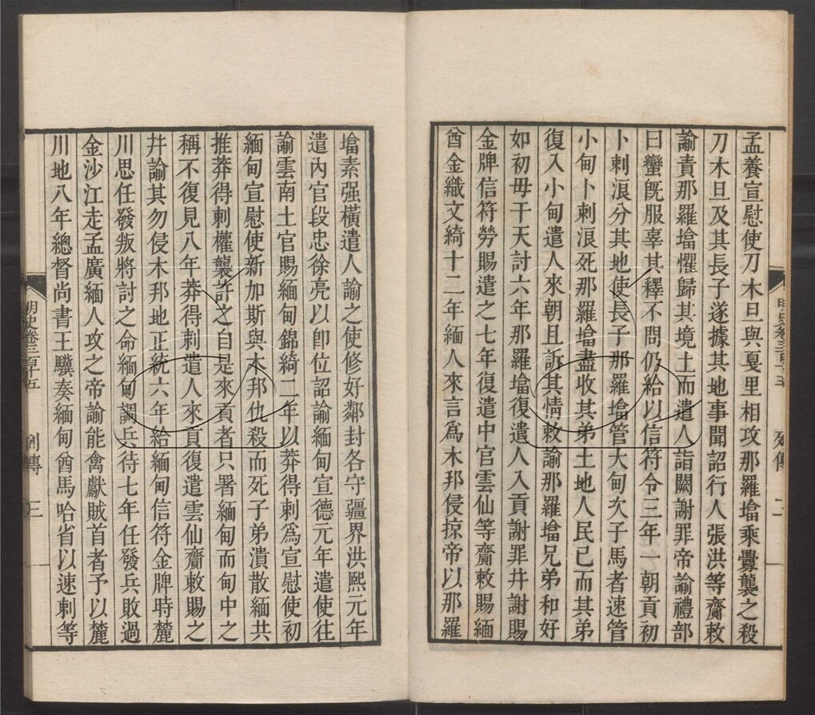 孟養宣慰使刀木旦與戞里相攻那羅塔乘釁襲之殺
刀木旦及其長子遂據其地事聞詔行人張洪等齎敕
諭責那羅塔懼歸其境土而遣人詣闕謝罪帝諭禮部
曰蠻旣服辜其釋不問仍給以信符令三年一朝貢初
卜剌浪分其地使長子那羅塔管大甸次子馬者速管
小甸卜剌浪死那羅塔盡收其弟土地人民已而其弟
復入小甸遣人來朝且訴其情敕諭那羅塔兄弟和好
如初毋干天討六年那羅塔復遣人入貢謝罪幷謝賜
金牌信符勞賜遣之七年復遣中官雲仙等齎敕賜緬
酋金織文綺十二年緬人來言爲木邦侵掠帝以那羅
明史卷三百十五 列傳 二
塔素强橫遣人諭之使修好鄰封各守疆界洪熙元年
遣內官段忠徐亮以卽位詔諭緬甸宣德元年遣使往
諭雲南土官賜緬甸錦綺二年以莽得剌爲宣慰使初
緬甸宣慰使新加斯與木邦仇殺而死子弟潰散緬共
推莽得剌權襲許之自是來貢者只署緬甸而甸中之
稱不復見八年莽得剌遣人來貢復遣雲仙齎敕賜之
幷諭其勿侵木邦地正統六年給緬甸信符金牌時麓
川思任發叛將討之命緬甸調兵待七年任發兵敗過
金沙江走孟廣緬人攻之帝諭能禽獻賊首者予以麓
川地八年總督尚書王驥奏緬甸酋馬哈省以速剌等
明史卷三百十五 列傳 三